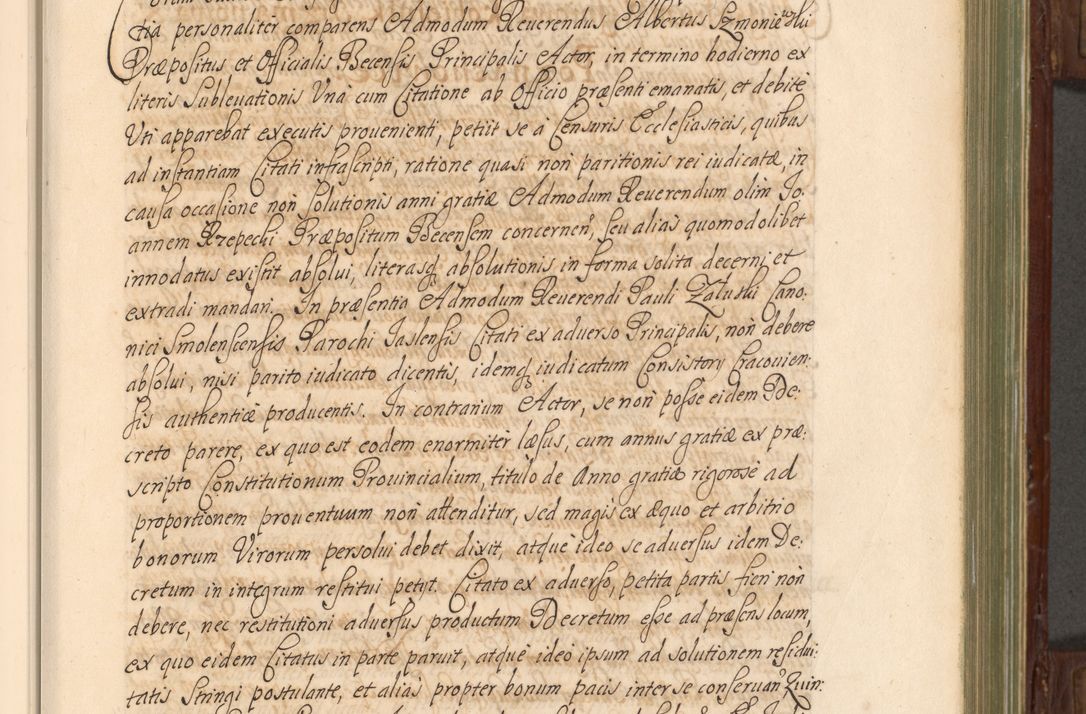 tia personaliter comparens Admodum Reuerendus Albertus Szmoniewski
Præpositus et Officialis Becensis Principalis Actor, in termino hodierno ex
literis Subleuationis Vna cum Citatione ab Officio præsenti emanatis, et debite
Vti apparebat executis prouenienti, petiit se a Censuris Ecclesiasticis, quibus
ad instantiam Citati infrascripti, ratione quasi non paritionis rei iudicatæ, in
causa occasione non solutionis anni gratiæ Admodum Reuerendum olim Jo:
annem Rzepecki Præpositum Becensem concernen, seu alias quomodolibet
innodatus existit absolui, literasq absolutionis in forma solita decerni et
extradi mandari. In præsentia Admodum Reuerendi Pauli Zaluski Cano:
nici Smolenscensis Parochi Jaslensis Citati ex aduerso Principalis, non debere
absolui, nisi parito iudicato dicentis, idemq iudicatum Consistory Cracouien:
sis authenticè producentis. In contrarium Actor, se non posse eidem De:
creto parere, ex quo est eodem enormiter læsus, cum annus gratiæ ex præ:
scripto Constitutionum Prouincialium, titulo de Anno gratiæ rigorosè ad
proportionem prouentuum non attenditur, sed magis ex æquo et arbitrio
bonorum Virorum persolui debet dixit, atque ideo se aduersus idem De:
cretum in integrum restitui petyt. Citato ex aduerso, petita partis fieri non
debere, nec restitutioni aduersus productum Decretum esse ad præsens locum,
ex quo eidem Citatus in parte paruit, atque ideo ipsum ad solutionem residui:
tatis Stringi postulante, et alias propter bonum pacis inter se conseruan Quin: